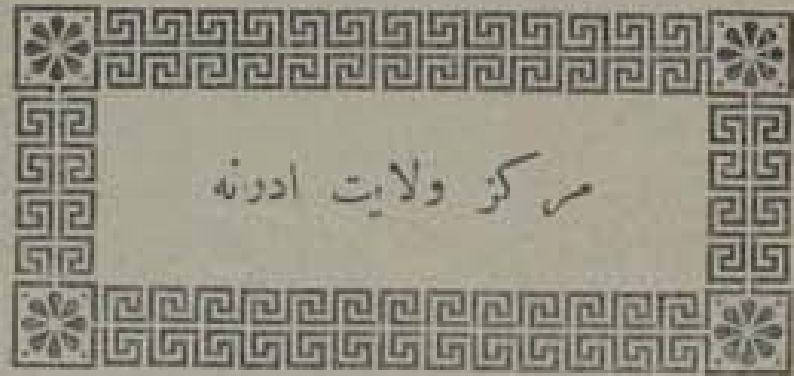 مركز ولايت ادرنه